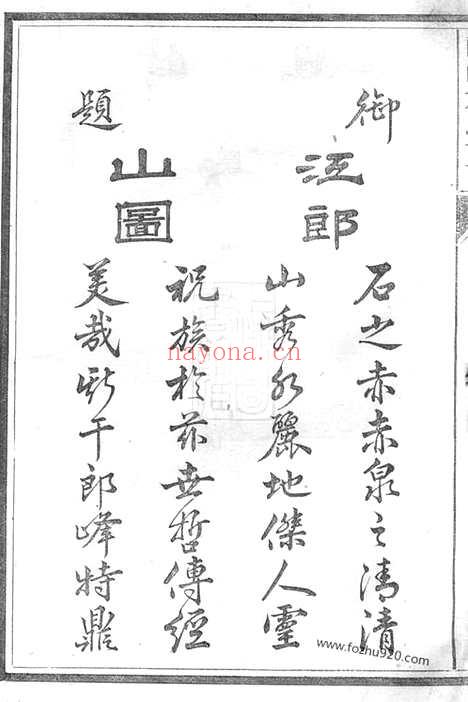 御
題
江郎
山圖
石之赤赤泉之清清
山秀水麗地傑人靈
祝族於茲世哲傳經
美哉斯干郎峰特鼎
nayona.cn
www.fozhu920.com